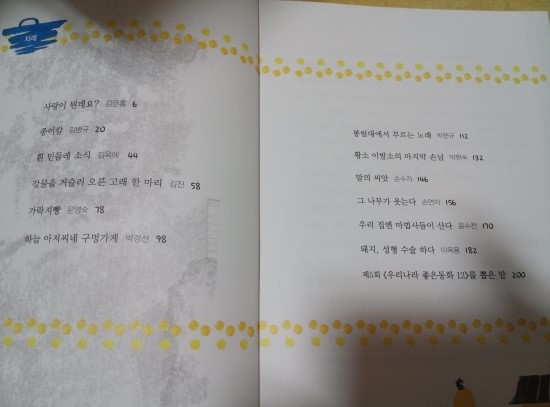 차례
사랑이 뭔데요? 김문홍 6
종이칼 김병규 20
흰 민들레 소식 김옥애 44
강물을 거슬러 오른 고래 한 마리 김진 58
가락지빵 문영숙 78
하늘 아저씨네 구멍가게 박경선 98
봉림대에서 부르는 노래 박명규 112
황소 이발소의 마지막 손님 박현숙 132
말의 씨앗 손수자 146
그 나무가 웃는다 손연자 156
우리 집엔 마법사들이 산다 윤수천 170
돼지, 성형 수술 하다 이옥용 182
제5회 《우리나라 좋은동화 12》를 뽑은 말 200